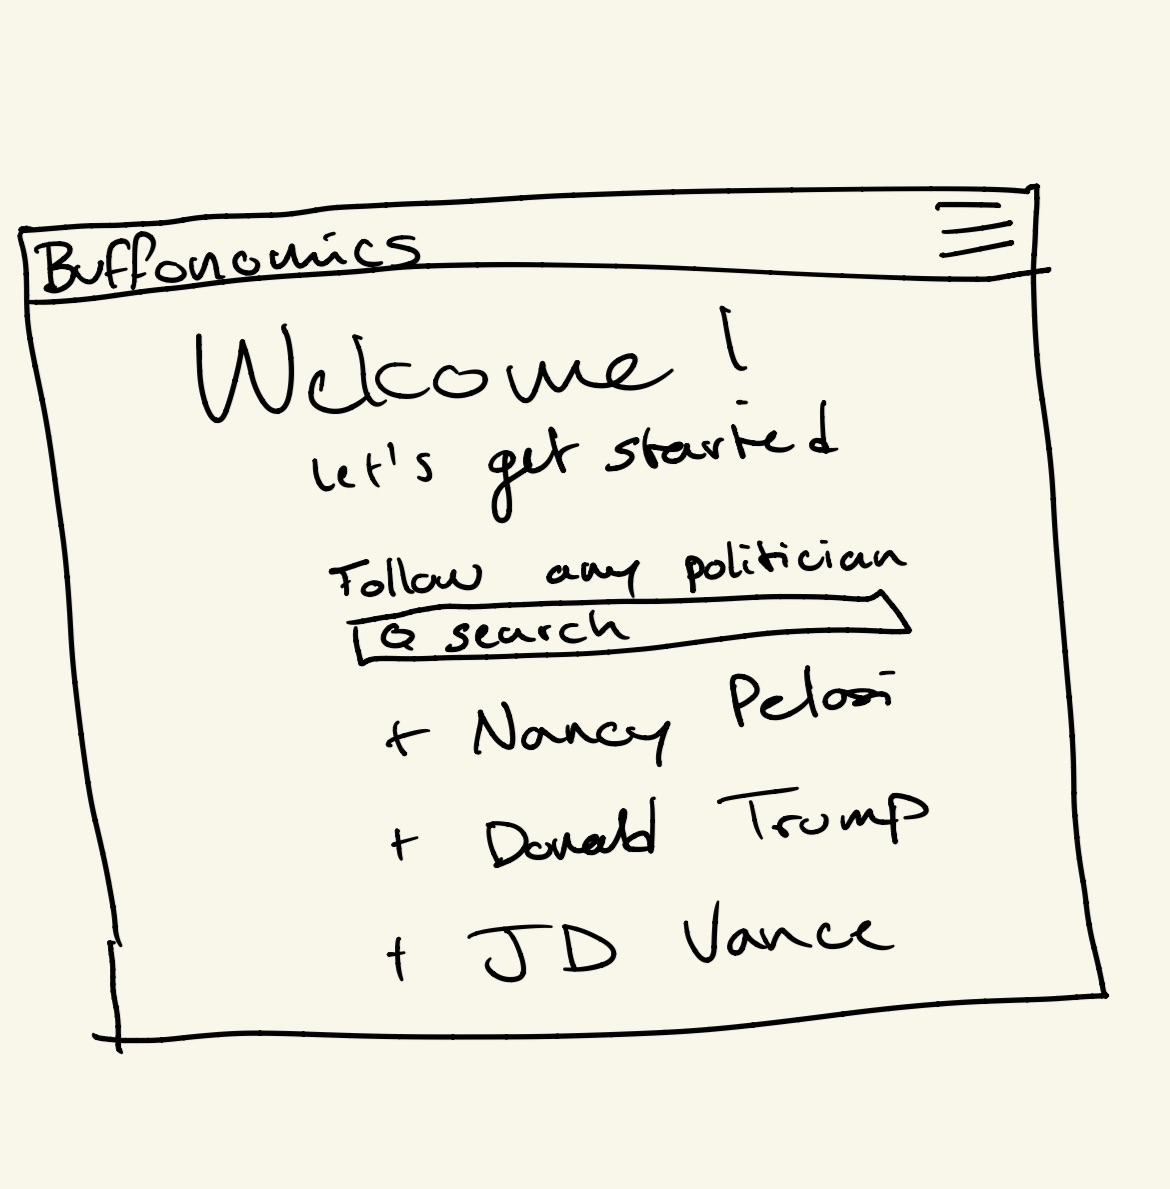 Buffonomics
Welcome!
Let's get started
Follow any politician
search
+ Nancy Pelosi
+ Donald Trump
+ JD Vance